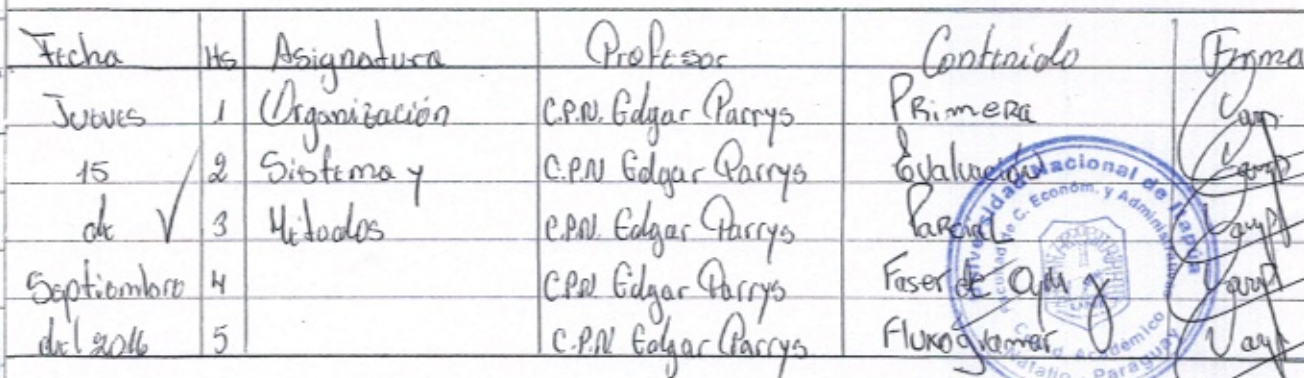 Fecha Hs Asignatura Profesor Contenido Firma
Jueves 1 Organización C.P.N. Edgar Parrys Primera
15 2 Sistema y C.P.N Edgar Parrys Evaluación
de 3 Métodos C.P.N. Edgar Parrys Parcial
Septiembre 4 C.P.N. Edgar Parrys de y
del 2016 5 C.P.N. Edgar Parrys
Universidad Nacional de Itapúa
Facultad de C. Económ. y Administrativas
Natalio - Paraguay